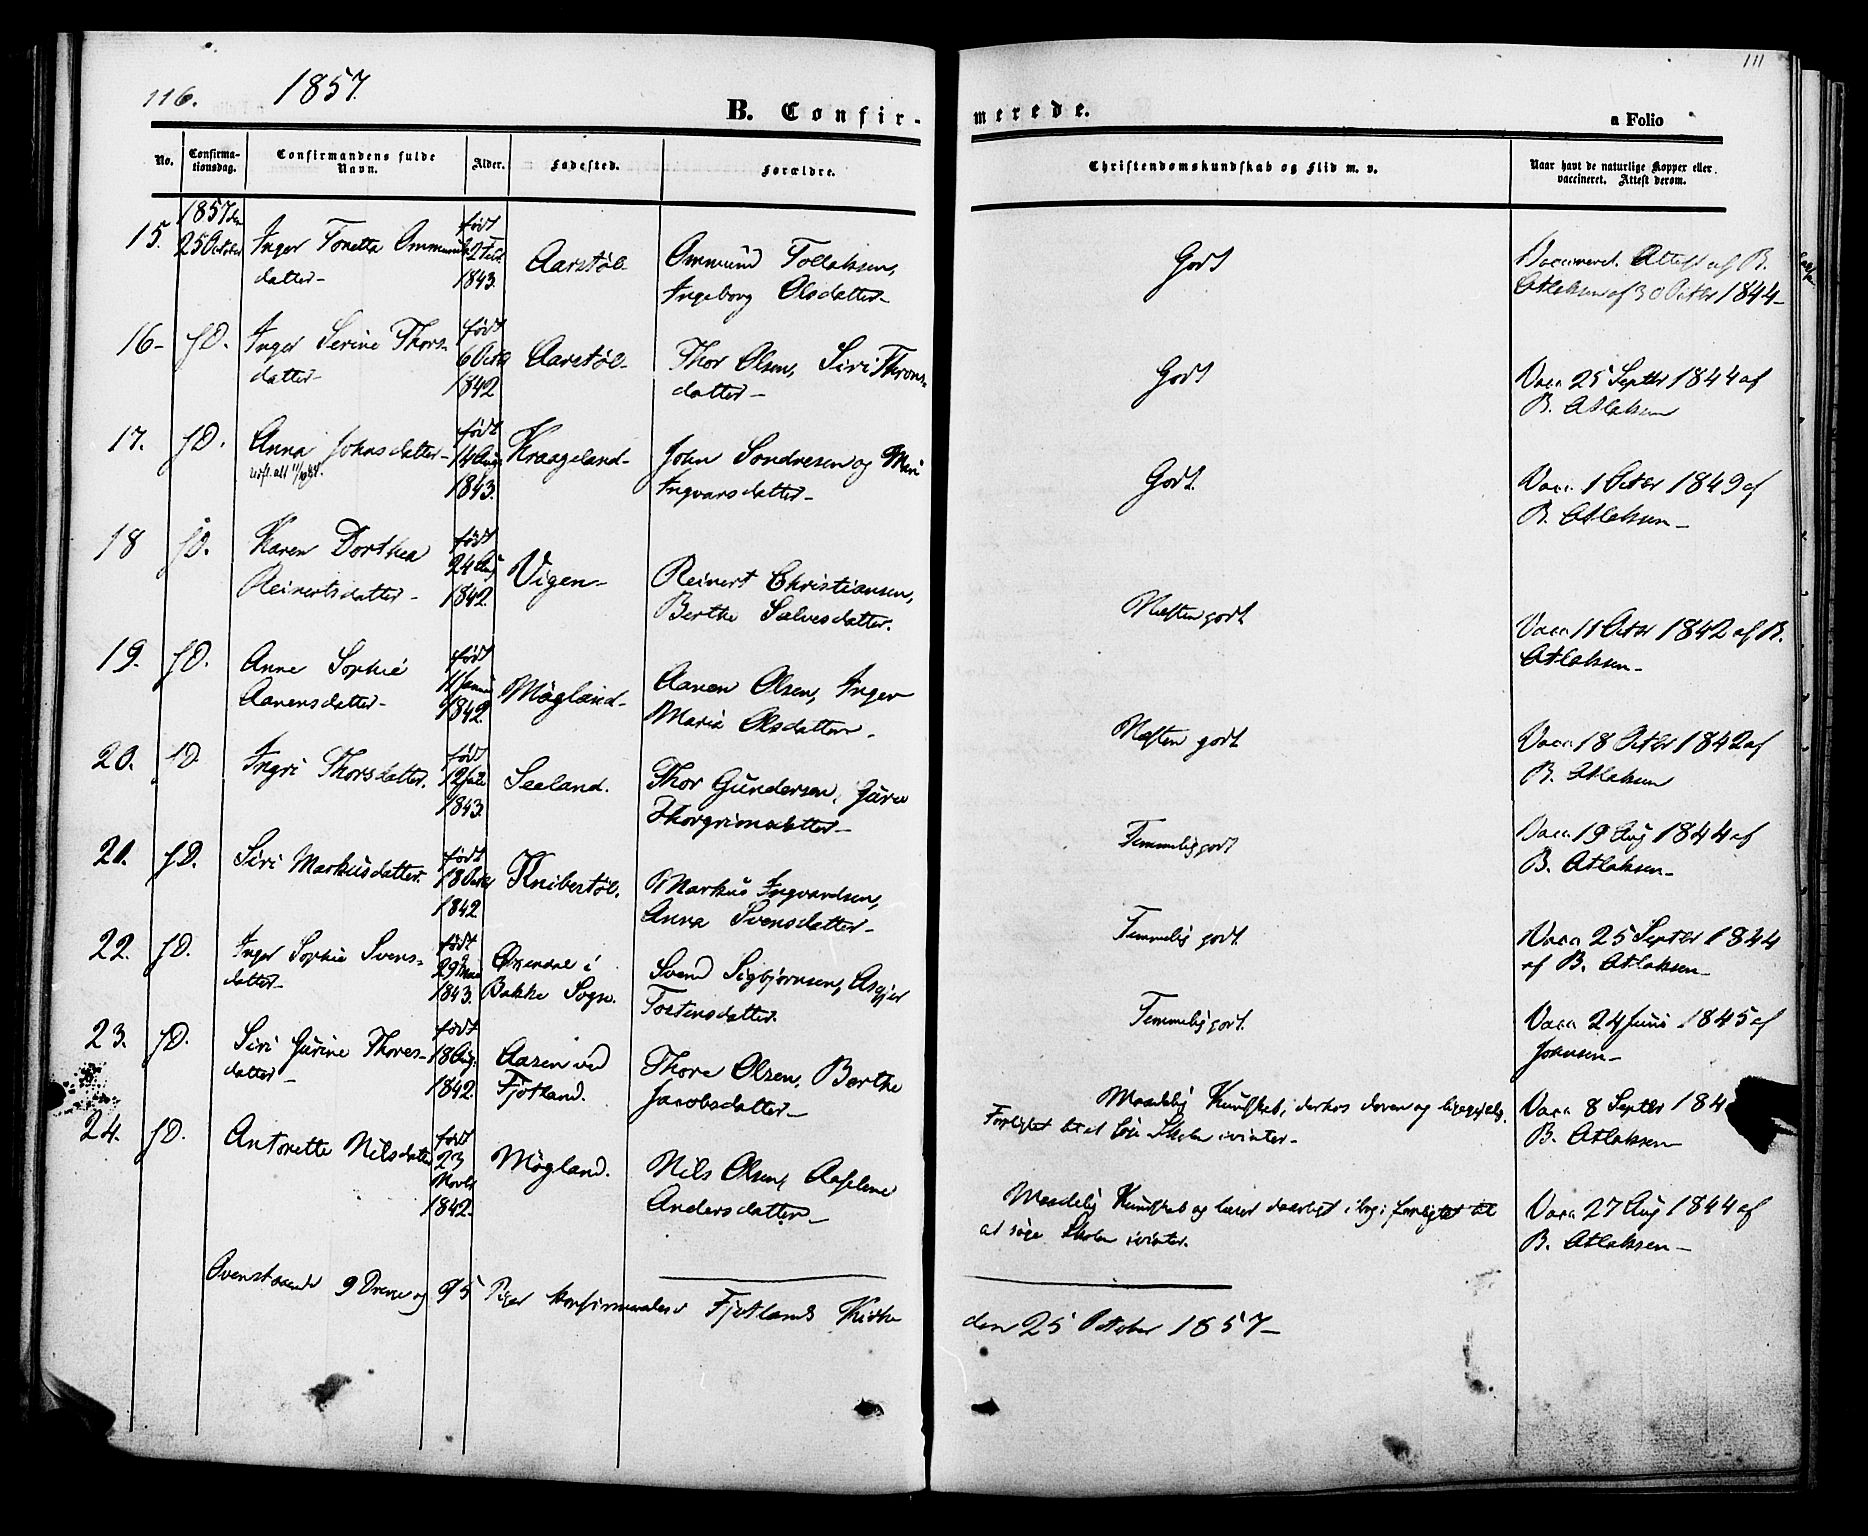 116.
1857.
B. Confirmerede.
a Folio
111
No.
Confirmationsdag.
Confirmandens fulde Navn.
Alder.
Fødested.
Forældre.
Christendomskundskab og Flid m. v.
Naar havt de naturlige Kopper eller vaccineret. Attest derom.
15. 1857 den født
25 October Inger Tonetta Ommunds- 2 Feb.
datter- 1843. Aarstøl- Ommund Tollaksen,
Ingeborg Olsdatter-
Godt
Vaccineret. Attest af B.
Atlaksen af 30 Octbr 1844-
16- fD. Inger Serine Thors- født
datter- 6 Octb 1842 Aarstøl- Thor Olsen, Siri Throns-
datter-
Godt
Vacc 25 Septbr 1844 af
B. Atlaksen
17. fD. Anna Johnsdatter- født
14 Aug 1843. Kraageland- John Sondresen og
Ingvarsdatter-
Godt.
Vacc 1 Octbr 1849 af
B. Atlaksen-
18 fD. Karen Dorthea født
Reinertsdatter- 24 Aug 1842. Vigen- Reinert Christiansen,
Berthe Salvesdatter.
Næsten godt
Vacc 11 Octbr 1842 af B.
Atlaksen-
19. fD. Anne Sophie født
Aanensdatter- 11 1842 Møgland- Aanen Olsen, Inger
Maria Olsdatter-
Næsten godt
Vacc 18 Octbr 1842 af
B. Atlaksen
20. fD. Ingri Thorsdatter. født
12 1843. Seeland. Thor Gundersen, Guro
Thorgrimsdatter-
Temmelig godt
Vacc 19 Aug 1844 af
B. Atlaksen-
21. fD. Siri Markusdatter. født
18 Octb 1842 Knibestøl. Markus Ingvardsen,
Anna Svensdatter-
Temmelig godt
Vacc 25 Septbr 1844
af B. Atlaksen-
22. fD. Inger Sophie Svens- født
datter- 29 Mai 1843. i
Bakke Sogn. Svend Sigbjørnsen, Asgjer
Tostensdatter.
Temmelig godt.
Vacc 24 Juni 1845 af
Johnsen-
23. fD. Siri Gurine Thores- født
datter- 18 Aug. 1842. Aasen ved
Fjotland. Thore Olsen, Berthe
Jacobsdatter-
Maadelig Kundskab, derhos doven og ligegyldig.
Forligtet til at søge Skolen ivinter-
Vacc 8 Septbr 184
B. Atlaksen
24. fD. Antonette Nilsdatter født
23 Novbr 1842. Møgland. Nils Olsen, Aaselene
Andersdatter-
Maadelig Kundskab og læser daarligt i bog; forligtet til
at søge Skolen ivinter.
Vacc 27 Aug 1844 af
B. Atlaksen-
Ovenstaaende 9 Drenge og 15 Piger konfirmerede i Fjotlands Kirke
den 25 October 1857-